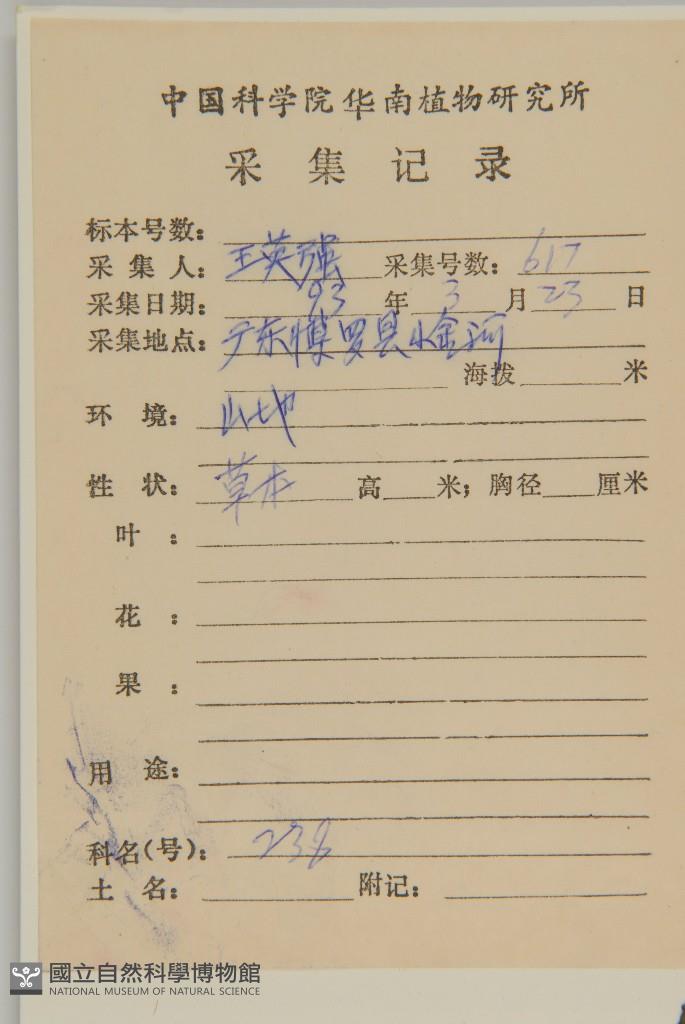 中国科学院华南植物研究所
采集记录
标本号数：
采集人：王英强 采集号数：617
采集日期：93年3月23日
采集地点：广东博罗县小金河
海拨 米
环境：山地
性状：草本 高 米；胸径 厘米
叶：
花：
果：
用途：
科名(号)：238
土名： 附记：
國立自然科學博物館
NATIONAL MUSEUM OF NATURAL SCIENCE